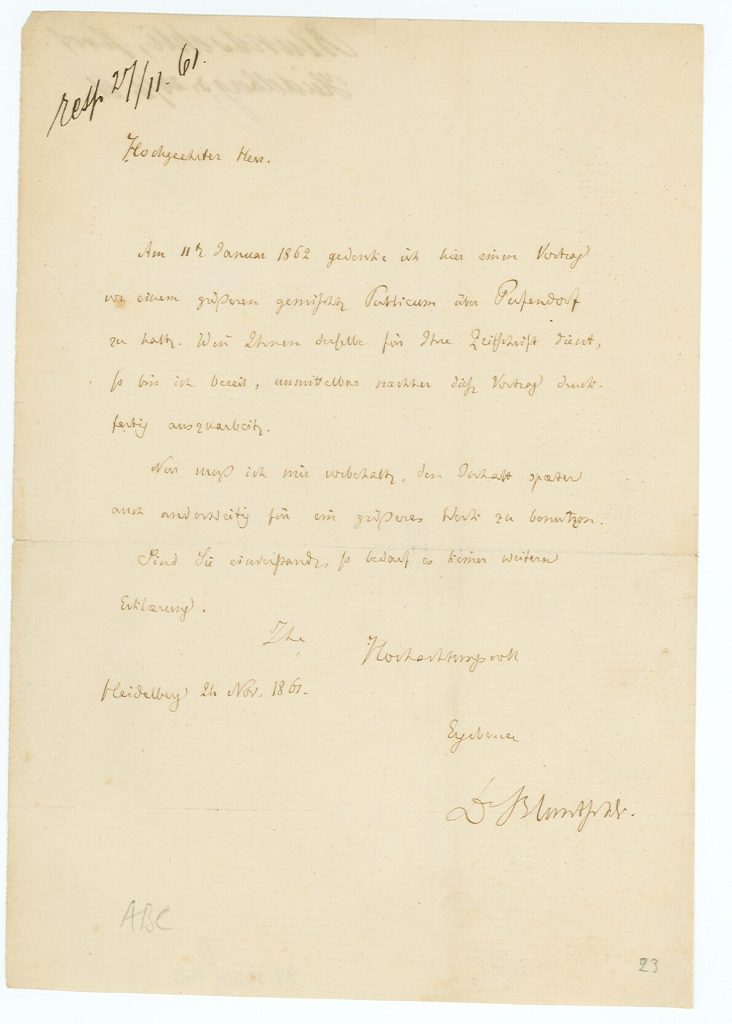 resp 27/11. 61.
Hochgeehrter Herr.
Am 11t Januar 1862 gedenke ich hier einen Vortrag
vor einem größeren gemischt Publicum über Pufendorf
zu halt. Weñ Ihnen derselbe für Ihre Zeitschrift dient,
so bin ich bereit, unmittelbar nachher dies Vortrag druck-
fertig auszuarbeit.
Nur muß ich mir vorbehalt, den Inhalt später
auch anderweitig für ein größeres Werk zu benutzen.
Sind Sie einverstand, so bedarf es keiner weitern
Erklærung.
Ihr
Hochachtungsvoll
Heidelberg 24 Nov. 1861.
Ergebener
Dr Bluntschli.
ABC
23